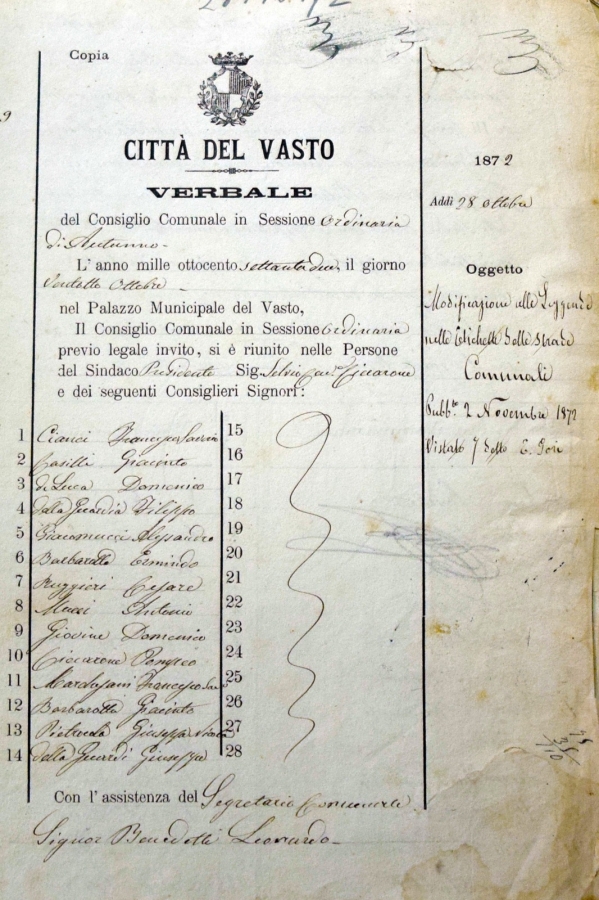 Copia
CITTÀ DEL VASTO
VERBALE
del Consiglio Comunale in Sessione Ordinaria
di Autunno -
L'anno mille ottocento settantadue, il giorno
Ventotto Ottobre -
nel Palazzo Municipale del Vasto,
Il Consiglio Comunale in Sessione Ordinaria
previo legale invito, si è riunito nelle Persone
del Sindaco Presidente Sig. Silvio Cav. Ciccarone
e dei seguenti Consiglieri Signori:
1 Cianci Francesco Saverio 15
2 Casilli Giacinto 16
3 di Luca Domenico 17
4 della Guardia Filippo 18
5 Giacomucci Alessandro 19
6 Barbarotta Ermindo 20
7 Ruggieri Cesare 21
8 Mucci Antonio 22
9 Giovine Domenico 23
10 Ciccarone Pompeo 24
11 Francesco 25
12 Barbarotta Giacinto 26
13 Pietrocola Giuseppe 27
14 della Guardi Giuseppe 28
Con l'assistenza del Segretario Comunale
Signor Benedetti Leonardo -
1872
Addì 28 ottobre
Oggetto
Modificazione alle Leggende
nelle Etichette delle strade
Comunali
Pubb.to 2 Novembre 1872
Vistato 7 detto